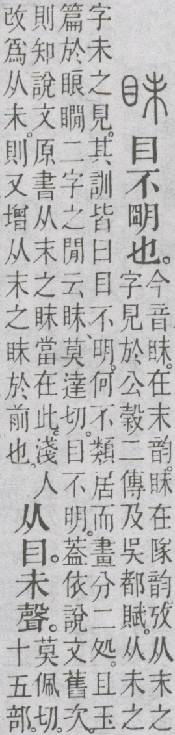 眛 目不朙也。
今音眜。在末韵。眛在隊韵。攷从末之
字見於公穀二傳及吳都賦。从未之
字未之見。其訓皆曰目不明。何不類居而畫分二処。且玉
篇於眼瞯二字之閒云眜、莫達切。目不明。葢依說文舊次。
則知說文原書从末之眜當在此。淺人
改爲从未。則又增从末之眜於前也。
从目。未聲。
莫佩切。
十五部。